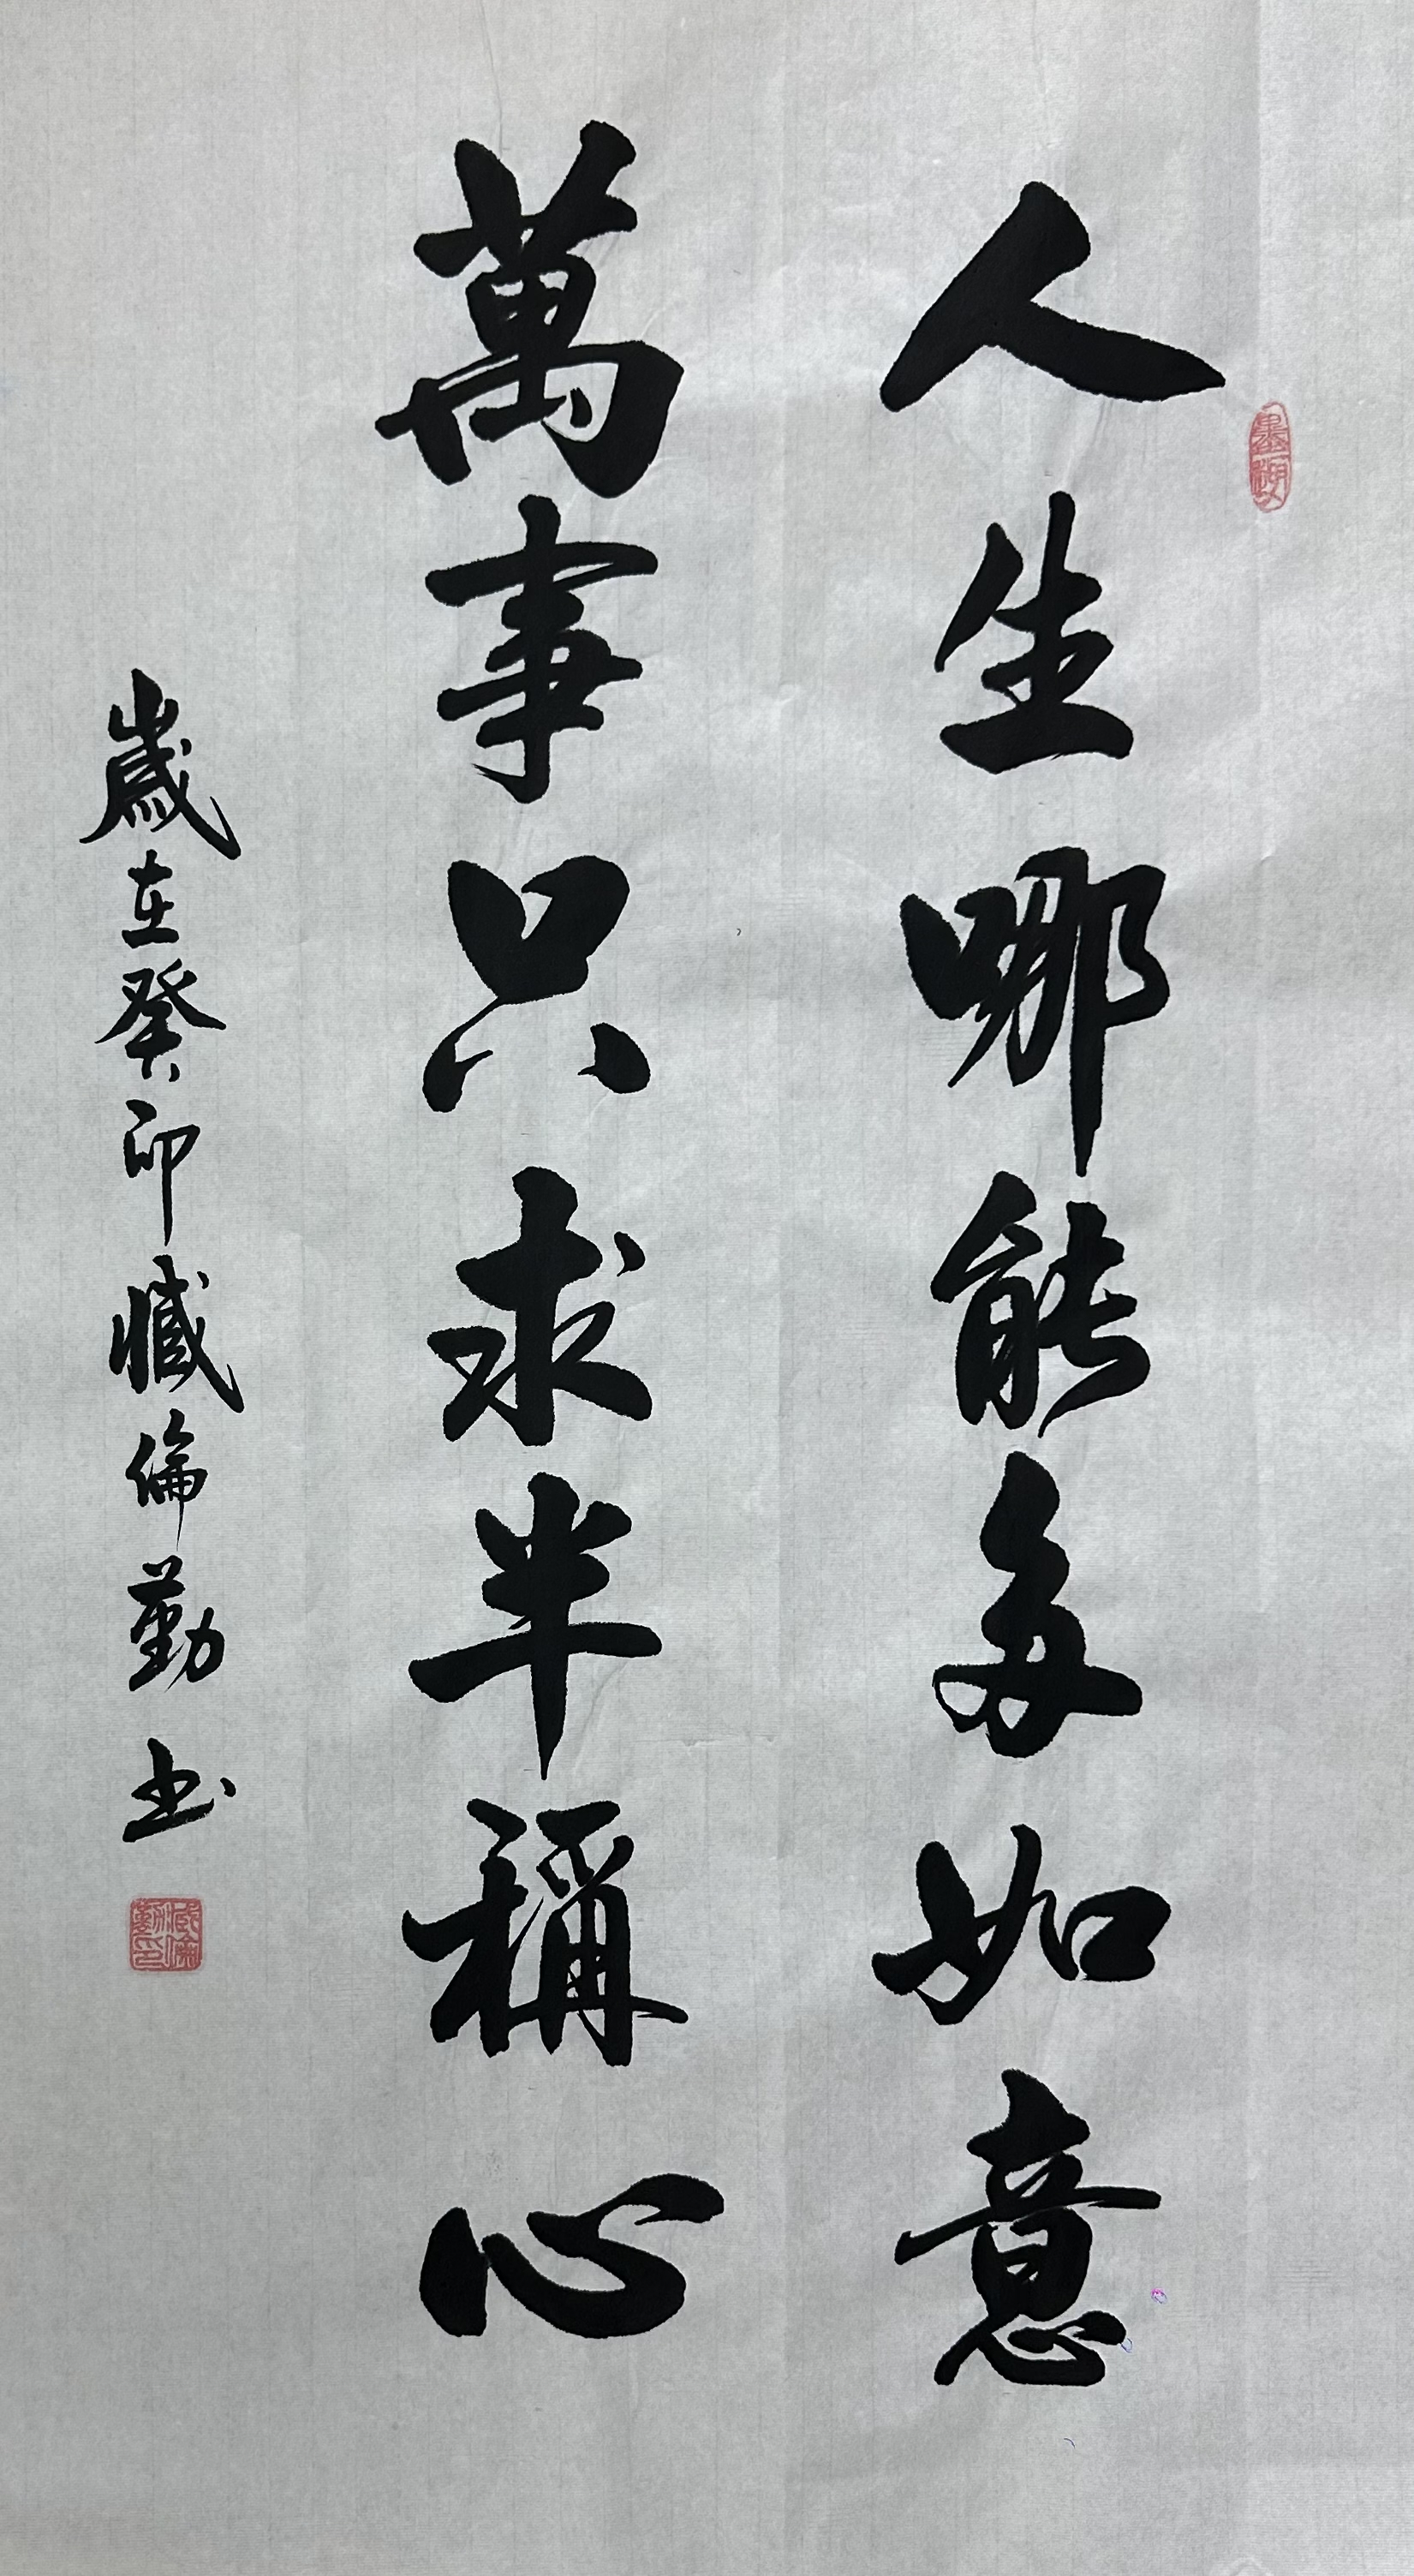 人生哪能多如意
萬事只求半稱心
歲在癸卯臧倫勤书